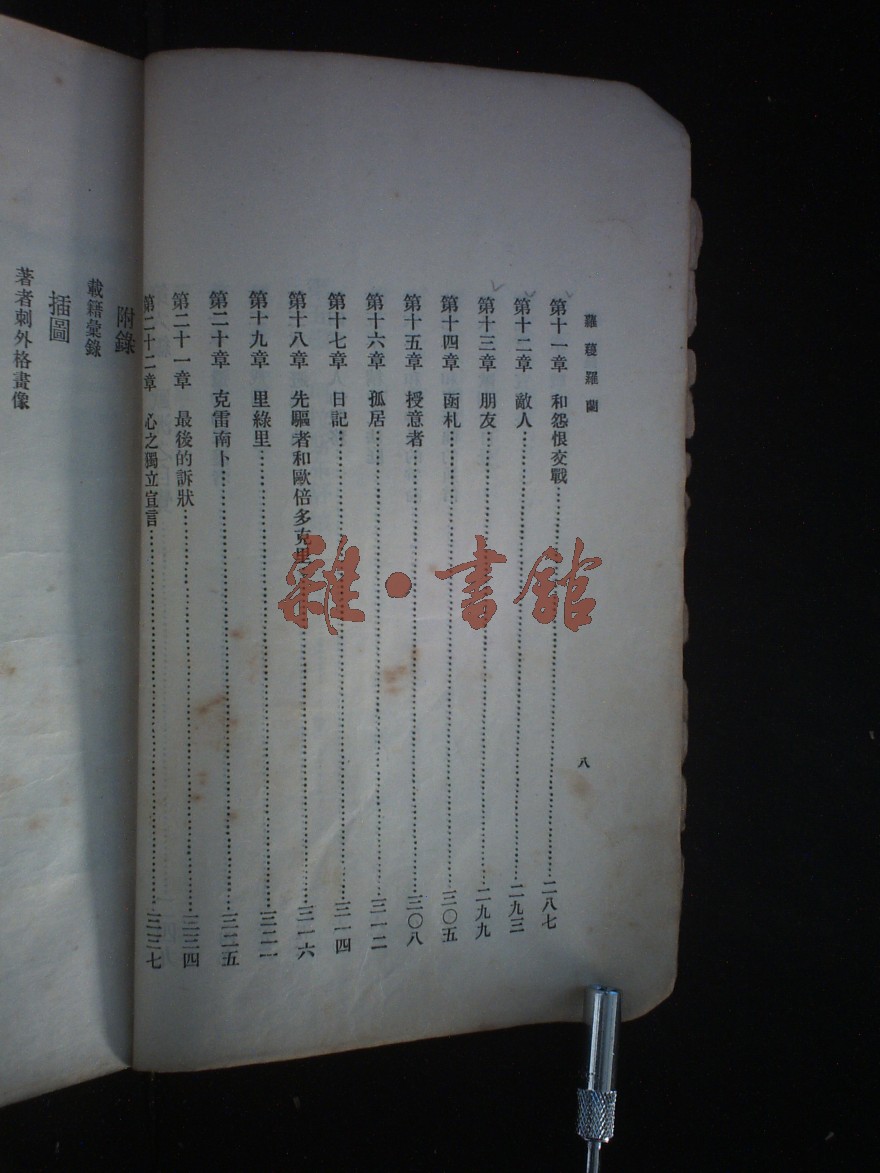 羅曼羅蘭
八
第十一章 和怨恨交戰 二八七
第十二章 敵人 二九三
第十三章 朋友 二九九
第十四章 函札 三〇五
第十五章 授意者 三〇八
第十六章 孤居 三一二
第十七章 日記 三一四
第十八章 先驅者和歐倍多克里 三一六
第十九章 里綠里 三二一
第二十章 克雷南卜 三二五
第二十一章 最後的訴狀 三三四
第二十二章 心之獨立宣言 三三七
附錄
載籍彙錄
插圖
著者刺外格畫像
雜·書館